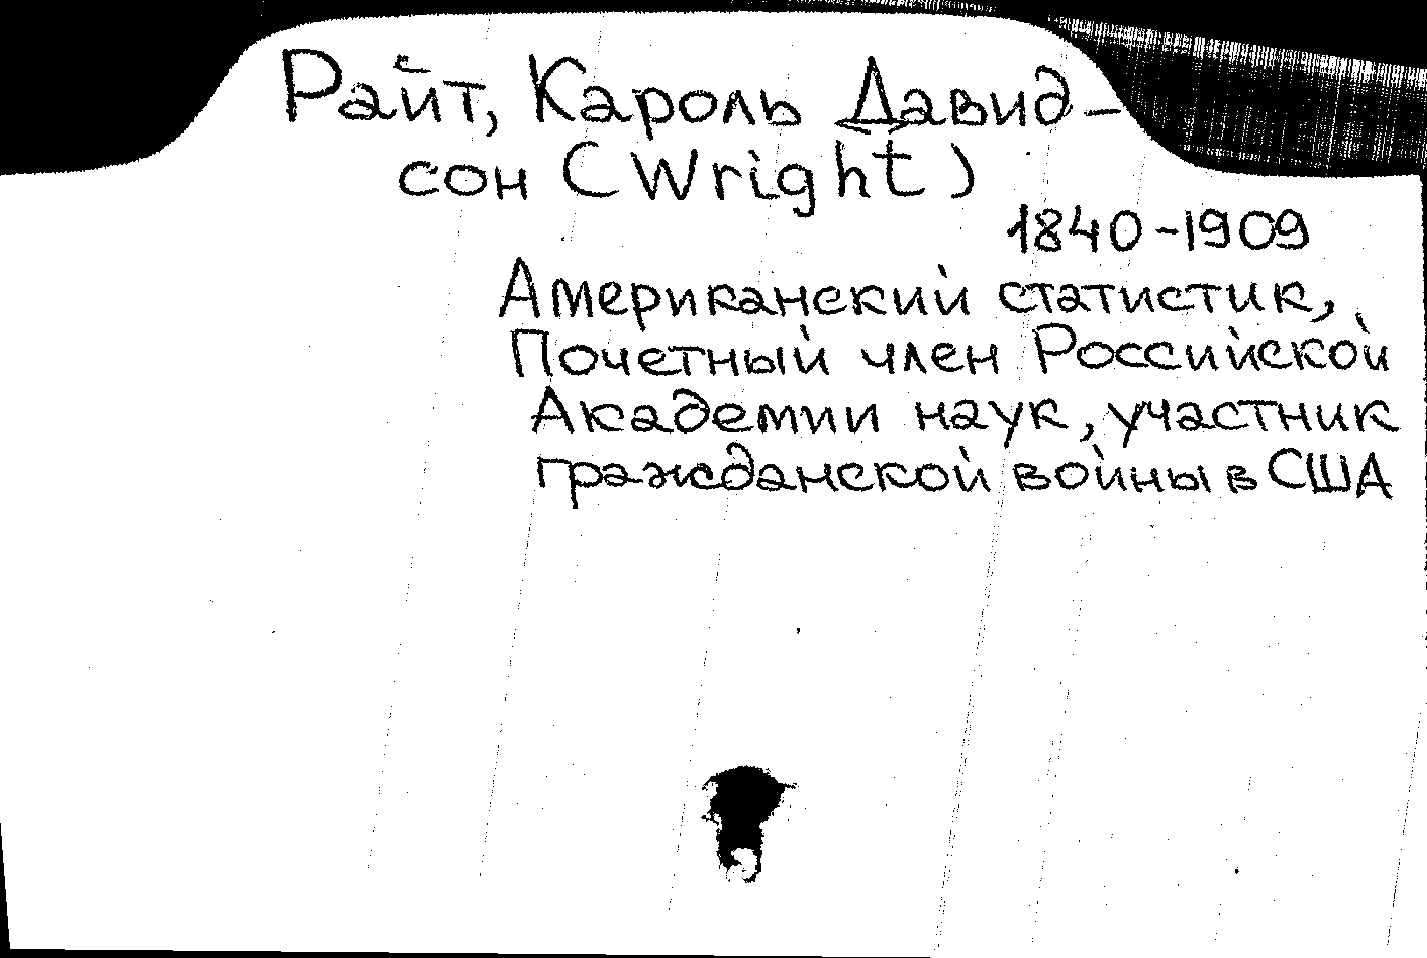 Райт, Кароль Давид-
сон (Wright)
1840-1909
Американский статистик,
Почетный член Российской
Академии наук, участник
гражданской войны в США